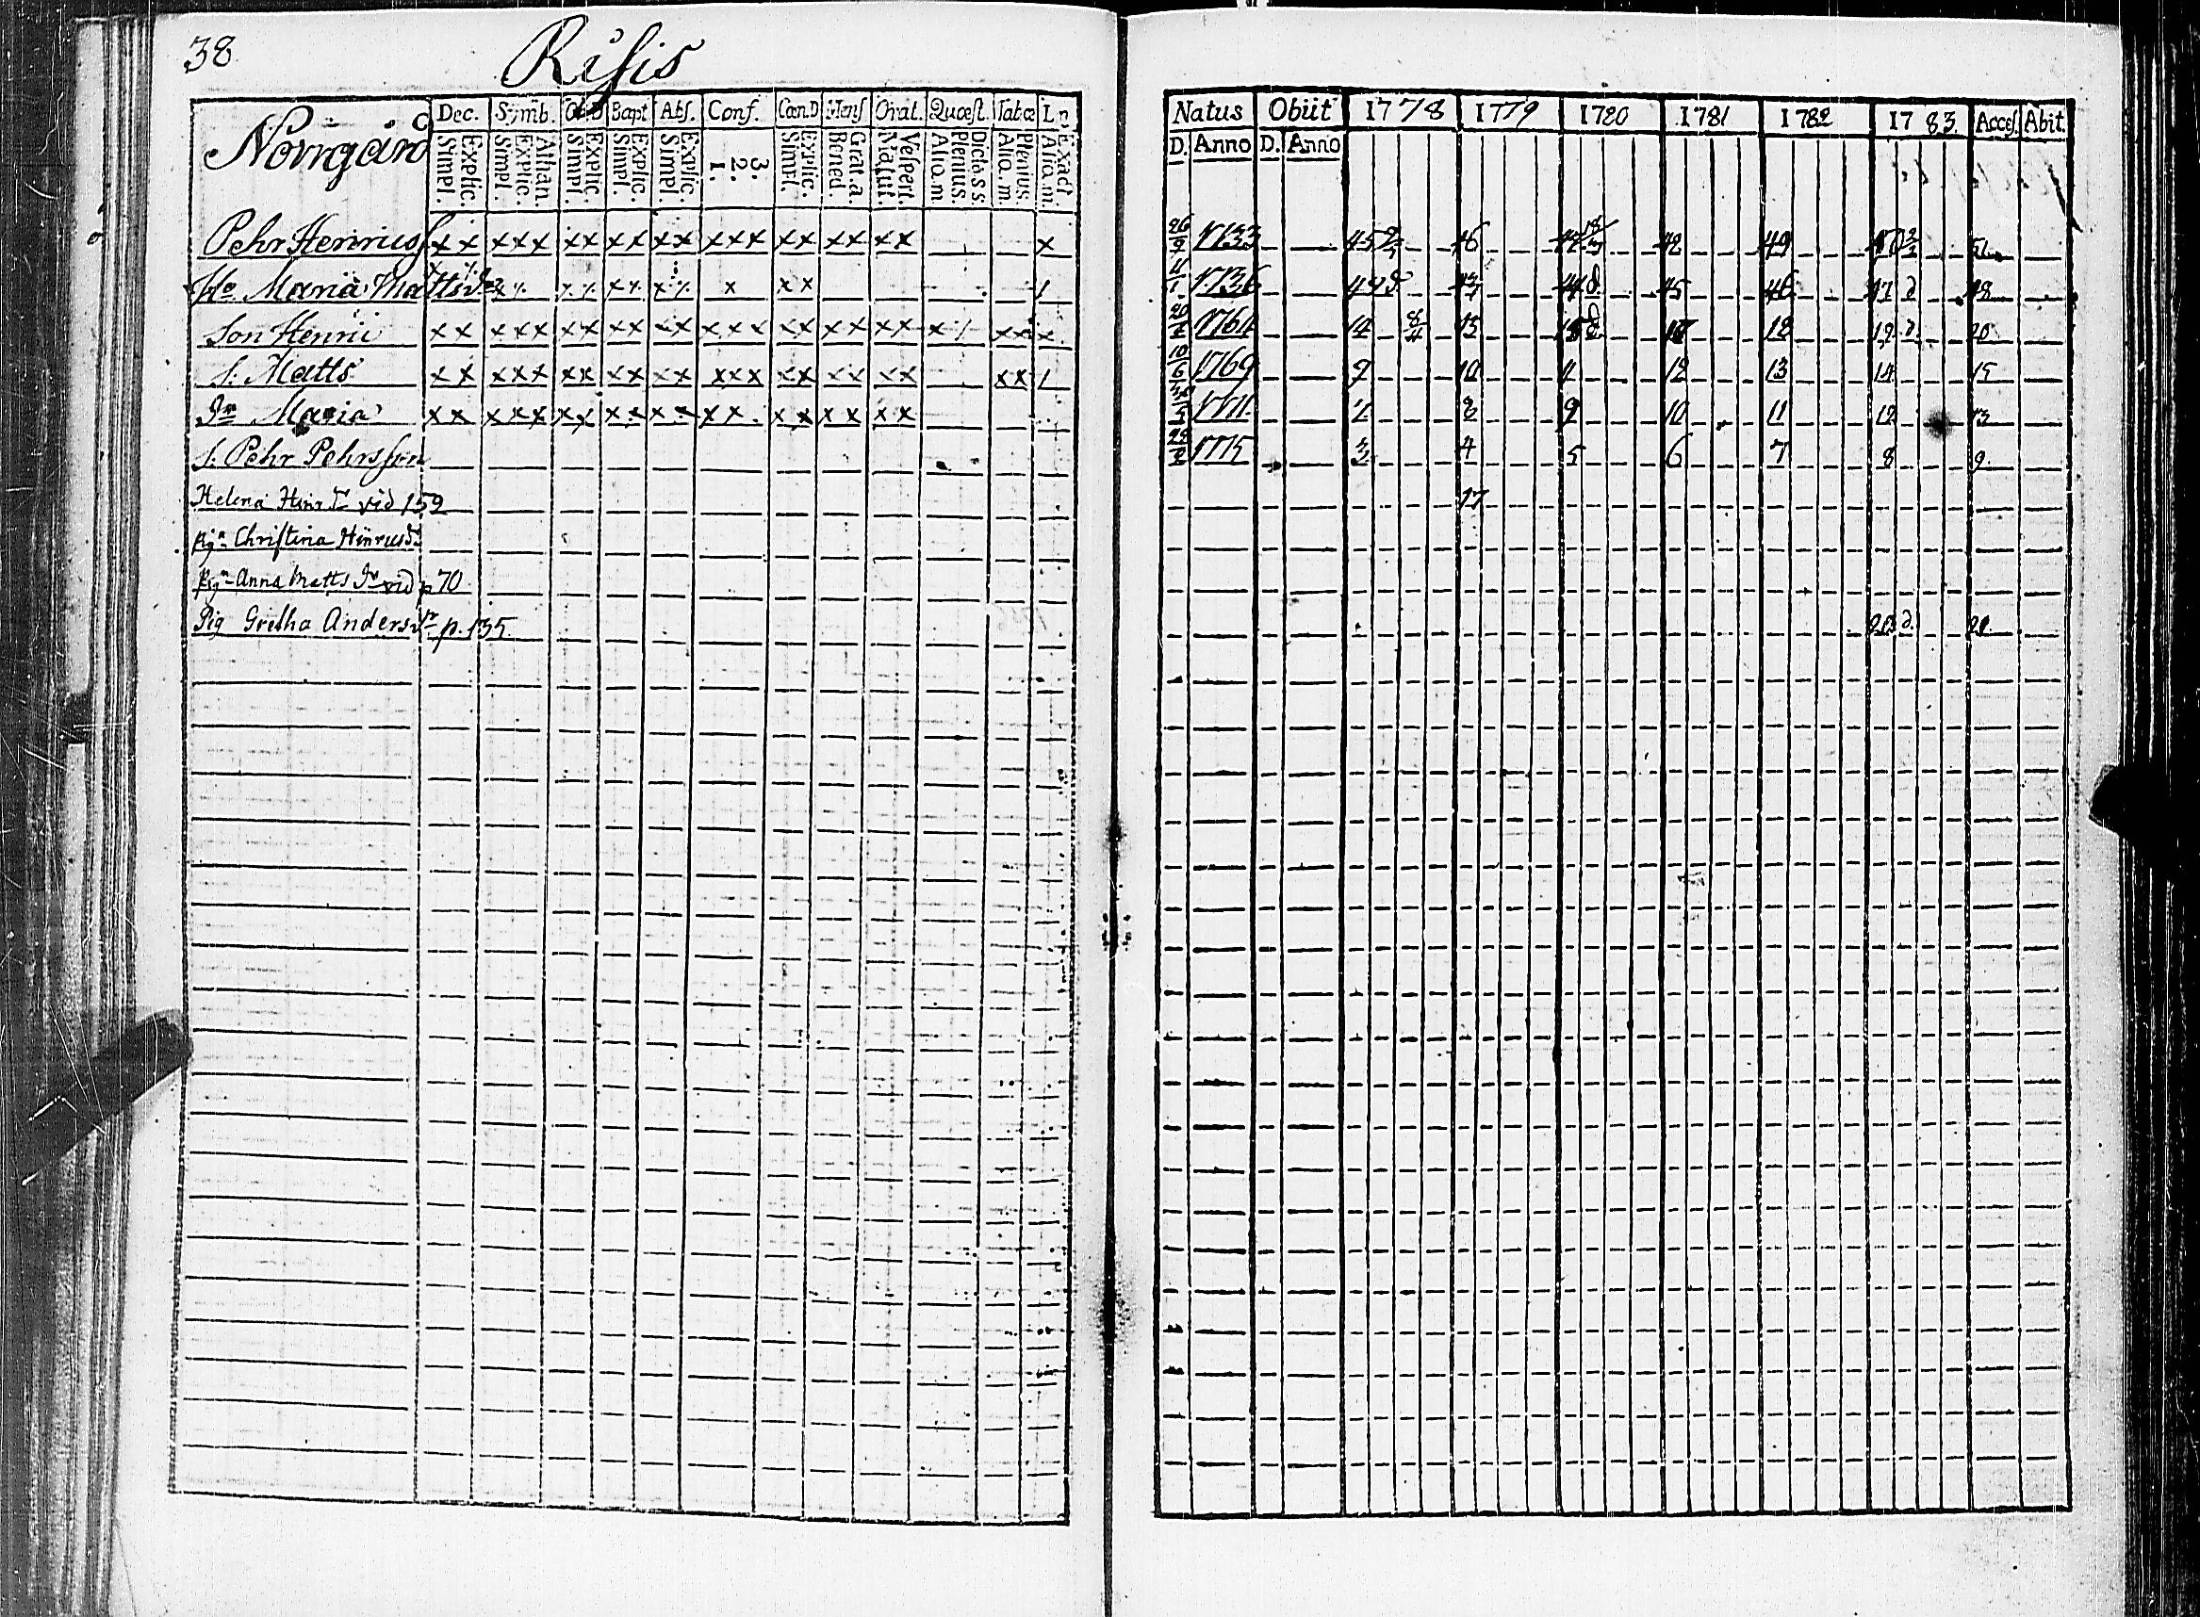 38
Risis
Norrgård
Dec. Symb. Or.D Bapt Abs. Conf. Cœn.D Mens Orat. Quæst. Tabœ L.n
Simpl. Explic. Simpl. Explic. Athan. Simpl. Explic. Simpl. Explic. Simpl. Explic. 1. 2. 3. Simpl. Explic. Bened. Grat.a. Matut. Vespert. Alio.m Plenius. Dicta S S Alio.m. Plenius. Alio.m. Exact.
Pehr Henricss x x x x x x x x x x x x x x x x x x x x
Ho Maria Matts dr x x x x x x x x x x
Son Henric x x x x x x x x x x x x x x x x x x x x / x x x
S: Matts x x x x x x x x x x x x x x x x x x x x x /
Dr Maria x x x x x x x x x x x x x x x x x x
S: Pehr Pehrsson
Helena Hinr.dr vid 159
pig. Christina Hinricsdr
Pig. Anna Matts dr vid p 70
Pig Gretha Anders dr p. 135.
Natus Obiit 1778 1779 1780 1781 1782 1783. Acces. Abit.
D. Anno D. Anno
26/9 1733 45 46 47 48 49 51
11/1 1736 43 44 45 46 47 d 48
20/2 1764 14 8/4 15 18 19 d. 20
10/6 1769 9 10 11 12 13 14 15
1771. 7 8 9 10 11 12 13
28/2 1775 3 4 5 6 7 8 9
17
20 d. 21.